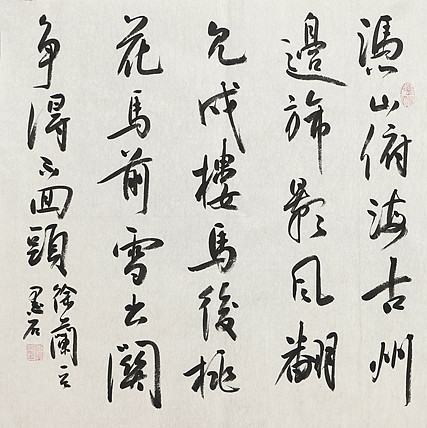 憑山俯海古州
邊旆影风翻
見戍樓馬後桃
花馬前雪出關
争得不回頭
徐蘭
墨石